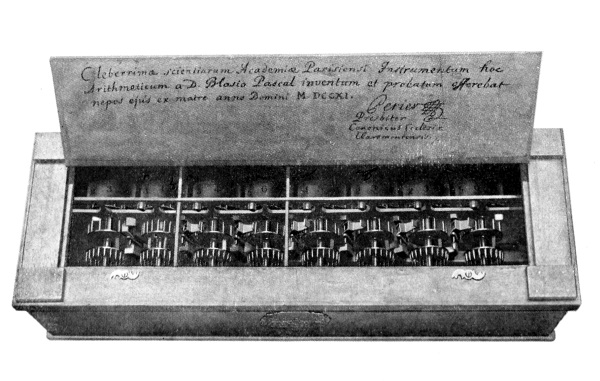 Celeberrimæ scientiarum Academiæ Parisiensi Instrumentum hoc
Arithmeticum a D. Blasio Pascal inventum et probatum offerebat
nepos ejus ex matre anno Domini M DCCXI.
Perier
Presbiter
Canonicus Ecclesiæ
Claromontensis